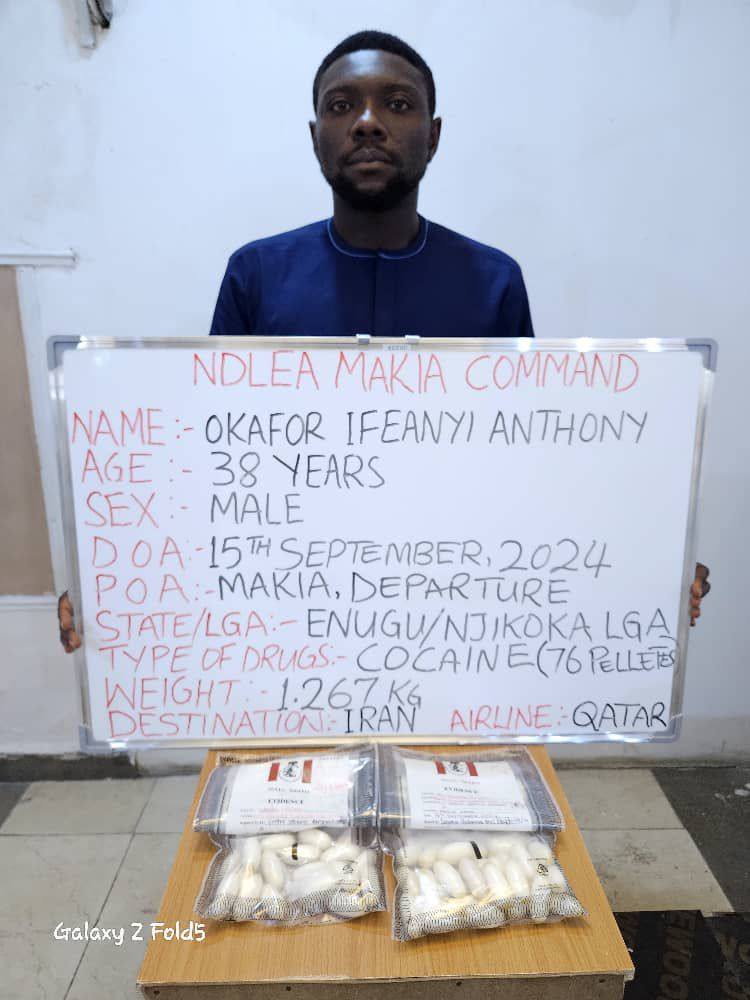 NDLEA MAKIA COMMAND
NAME:- OKAFOR IFEANYI ANTHONY
AGE:- 38 YEARS
SEX:- MALE
DOA:- 15TH SEPTEMBER, 2024
POA:- MAKIA, DEPARTURE
STATE/LGA:- ENUGU/NJIKOKA LGA
TYPE OF DRUGS:- COCAINE (76 PELLETES
WEIGHT:- 1.267 KG
DESTINATION:- IRAN AIRLINE:- QATAR
EVIDENCE
EVIDENCE
Galaxy Z Fold5